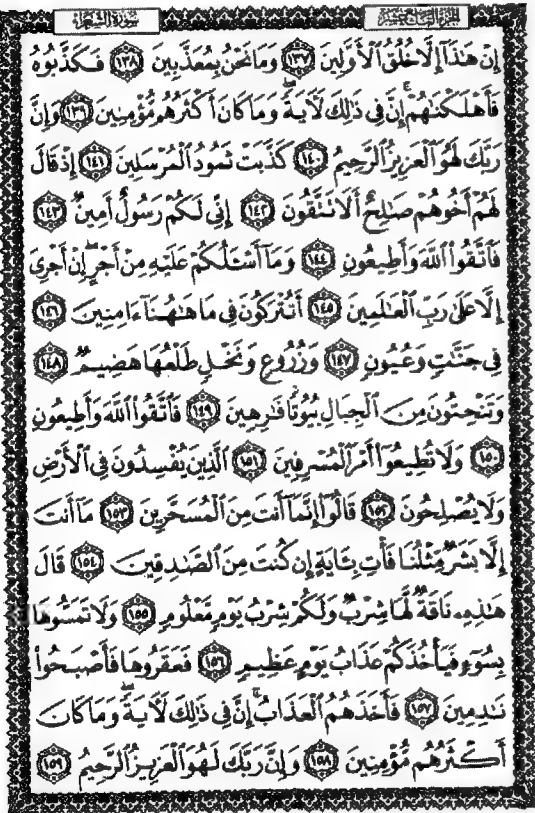 سورة الشعراء الجزء التاسع عشر
إِنْ هَٰذَآ إِلَّا خُلُقُ ٱلْأَوَّلِينَ ١٣٧ وَمَا نَحْنُ بِمُعَذَّبِينَ ١٣٨ فَكَذَّبُوهُ
فَأَهْلَكْنَٰهُمْ إِنَّ فِى ذَٰلِكَ لَءَايَةً وَمَا كَانَ أَكْثَرُهُم مُّؤْمِنِينَ ١٣٩ وَإِنَّ
رَبَّكَ لَهُوَ ٱلْعَزِيزُ ٱلرَّحِيمُ ١٤٠ كَذَّبَتْ ثَمُودُ ٱلْمُرْسَلِينَ ١٤١ إِذْ قَالَ
لَهُمْ أَخُوهُمْ صَٰلِحٌ أَلَا تَتَّقُونَ ١٤٢ إِنِّى لَكُمْ رَسُولٌ أَمِينٌ ١٤٣
فَٱتَّقُوا۟ ٱللَّهَ وَأَطِيعُونِ ١٤٤ وَمَآ أَسْـَٔلُكُمْ عَلَيْهِ مِنْ أَجْرٍ إِنْ أَجْرِىَ
إِلَّا عَلَىٰ رَبِّ ٱلْعَٰلَمِينَ ١٤٥ أَتُتْرَكُونَ فِى مَا هَٰهُنَآ ءَامِنِينَ ١٤٦
فِى جَنَّٰتٍ وَعُيُونٍ ١٤٧ وَزُرُوعٍ وَنَخْلٍ طَلْعُهَا هَضِيمٌ ١٤٨
وَتَنْحِتُونَ مِنَ ٱلْجِبَالِ بُيُوتًا فَٰرِهِينَ ١٤٩ فَٱتَّقُوا۟ ٱللَّهَ وَأَطِيعُونِ
١٥٠ وَلَا تُطِيعُوٓا۟ أَمْرَ ٱلْمُسْرِفِينَ ١٥١ ٱلَّذِينَ يُفْسِدُونَ فِى ٱلْأَرْضِ
وَلَا يُصْلِحُونَ ١٥٢ قَالُوٓا۟ إِنَّمَآ أَنتَ مِنَ ٱلْمُسَحَّرِينَ ١٥٣ مَآ أَنتَ
إِلَّا بَشَرٌ مِّثْلُنَا فَأْتِ بِـَٔايَةٍ إِن كُنتَ مِنَ ٱلصَّٰدِقِينَ ١٥٤ قَالَ
هَٰذِهِۦ نَاقَةٌ لَّهَا شِرْبٌ وَلَكُمْ شِرْبُ يَوْمٍ مَّعْلُومٍ ١٥٥ وَلَا تَمَسُّوهَا
بِسُوٓءٍ فَيَأْخُذَكُمْ عَذَابُ يَوْمٍ عَظِيمٍ ١٥٦ فَعَقَرُوهَا فَأَصْبَحُوا۟
نَٰدِمِينَ ١٥٧ فَأَخَذَهُمُ ٱلْعَذَابُ إِنَّ فِى ذَٰلِكَ لَءَايَةً وَمَا كَانَ
أَكْثَرُهُم مُّؤْمِنِينَ ١٥٨ وَإِنَّ رَبَّكَ لَهُوَ ٱلْعَزِيزُ ٱلرَّحِيمُ ١٥٩